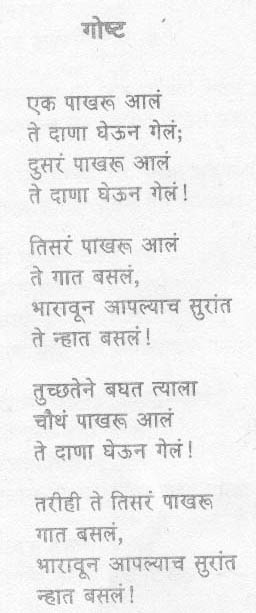 गोष्ट
एक पाखरू आलं
ते दाणा घेऊन गेलं;
दुसरं पाखरू आलं
ते दाणा घेऊन गेलं!
तिसरं पाखरू आलं
ते गात बसलं,
भारावून आपल्याच सुरांत
ते न्हात बसलं!
तुच्छतेने बघत त्याला
चौथं पाखरू आलं
ते दाणा घेऊन गेलं!
तरीही ते तिसरं पाखरू
गात बसलं,
भारावून आपल्याच सुरांत
न्हात बसलं!